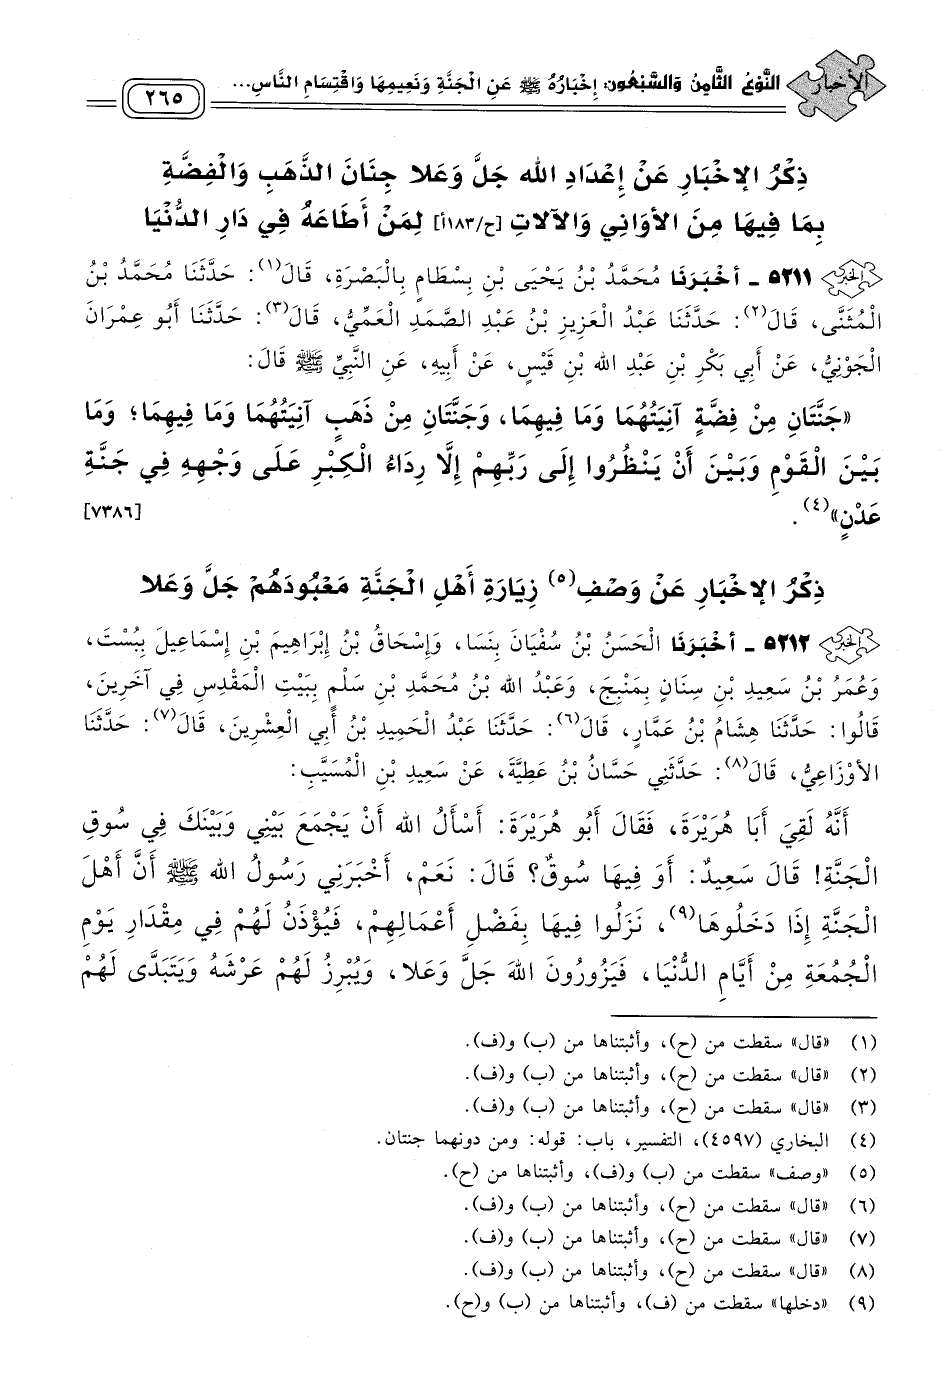 الأخبار
النَّوْعُ الثَّامِنُ وَالسَّبْعُون: إِخْبَارُهُ ﷺ عَنِ الْجَنَّةِ وَنَعِيمِهَا وَاقْتِسَامِ النَّاسِ...
٢٦٥
ذِكْرُ الإخْبَارِ عَنْ إِعْدَادِ الله جَلَّ وَعَلا جِنَانَ الذَّهَبِ وَالْفِضَّةِ
بِمَا فِيهَا مِنَ الأوَانِي وَالآلاتِ [ح/١٨٣أ] لِمَنْ أَطَاعَهُ فِي دَارِ الدُّنْيَا
الخبر ٥٢١١ ـ أخْبَرَنَا مُحَمَّدُ بْنُ يَحْيَى بْنِ بِسْطَامٍ بِالْبَصْرَةِ، قَالَ(١): حَدَّثَنَا مُحَمَّدُ بْنُ
الْمُثَنَّى، قَالَ(٢): حَدَّثَنَا عَبْدُ الْعَزِيزِ بْنُ عَبْدِ الصَّمَدِ الْعَمِّيُّ، قَالَ(٣): حَدَّثَنَا أَبُو عِمْرَانَ
الْجَوْنِيُّ، عَنْ أَبِي بَكْرِ بْنِ عَبْدِ الله بْنِ قَيْسٍ، عَنْ أَبِيهِ، عَنِ النَّبِيِّ ﷺ قَالَ:
«جَنَّتَانِ مِنْ فِضَّةٍ آنِيَتُهُمَا وَمَا فِيهِمَا، وَجَنَّتَانِ مِنْ ذَهَبٍ آنِيَتُهُمَا وَمَا فِيهِمَا؛ وَمَا
بَيْنَ الْقَوْمِ وَبَيْنَ أَنْ يَنْظُرُوا إِلَى رَبِّهِمْ إِلَّا رِدَاءُ الْكِبْرِ عَلَى وَجْهِهِ فِي جَنَّةِ
عَدْنٍ»(٤). [٧٣٨٦]
ذِكْرُ الإخْبَارِ عَنْ وَصْفِ(٥) زِيَارَةِ أَهْلِ الْجَنَّةِ مَعْبُودَهُمْ جَلَّ وَعَلا
الخبر ٥٢١٢ ـ أخْبَرَنَا الْحَسَنُ بْنُ سُفْيَانَ بِنَسَا، وَإِسْحَاقُ بْنُ إِبْرَاهِيمَ بْنِ إِسْمَاعِيلَ بِبُسْتَ،
وَعُمَرُ بْنُ سَعِيدِ بْنِ سِنَانٍ بِمَنْبِجَ، وَعَبْدُ الله بْنُ مُحَمَّدِ بْنِ سَلْمٍ بِبَيْتِ الْمَقْدِسِ فِي آخَرِينَ،
قَالُوا: حَدَّثَنَا هِشَامُ بْنُ عَمَّارٍ، قَالَ(٦): حَدَّثَنَا عَبْدُ الْحَمِيدِ بْنُ أَبِي الْعِشْرِينَ، قَالَ(٧): حَدَّثَنَا
الأوْزَاعِيُّ، قَالَ(٨): حَدَّثَنِي حَسَّانُ بْنُ عَطِيَّةَ، عَنْ سَعِيدِ بْنِ الْمُسَيَّبِ:
أَنَّهُ لَقِيَ أَبَا هُرَيْرَةَ، فَقَالَ أَبُو هُرَيْرَةَ: أَسْأَلُ الله أَنْ يَجْمَعَ بَيْنِي وَبَيْنَكَ فِي سُوقِ
الْجَنَّةِ! قَالَ سَعِيدٌ: أَوَ فِيهَا سُوقٌ؟ قَالَ: نَعَمْ، أَخْبَرَنِي رَسُولُ الله ﷺ أَنَّ أَهْلَ
الْجَنَّةِ إِذَا دَخَلُوهَا(٩)، نَزَلُوا فِيهَا بِفَضْلِ أَعْمَالِهِمْ، فَيُؤْذَنُ لَهُمْ فِي مِقْدَارِ يَوْمِ
الْجُمُعَةِ مِنْ أَيَّامِ الدُّنْيَا، فَيَزُورُونَ اللهَ جَلَّ وَعَلا، وَيُبْرِزُ لَهُمْ عَرْشَهُ وَيَتَبَدَّى لَهُمْ
(١) «قال» سقطت من (ح)، وأثبتناها من (ب) و(ف).
(٢) «قال» سقطت من (ح)، وأثبتناها من (ب) و(ف).
(٣) «قال» سقطت من (ح)، وأثبتناها من (ب) و(ف).
(٤) البخاري (٤٥٩٧)، التفسير، باب: قوله: ومن دونهما جنتان.
(٥) «وصف» سقطت من (ب) و(ف)، وأثبتناها من (ح).
(٦) «قال» سقطت من (ح)، وأثبتناها من (ب) و(ف).
(٧) «قال» سقطت من (ح)، وأثبتناها من (ب) و(ف).
(٨) «قال» سقطت من (ح)، وأثبتناها من (ب) و(ف).
(٩) «دخلها» سقطت من (ف)، وأثبتناها من (ب) و(ح).